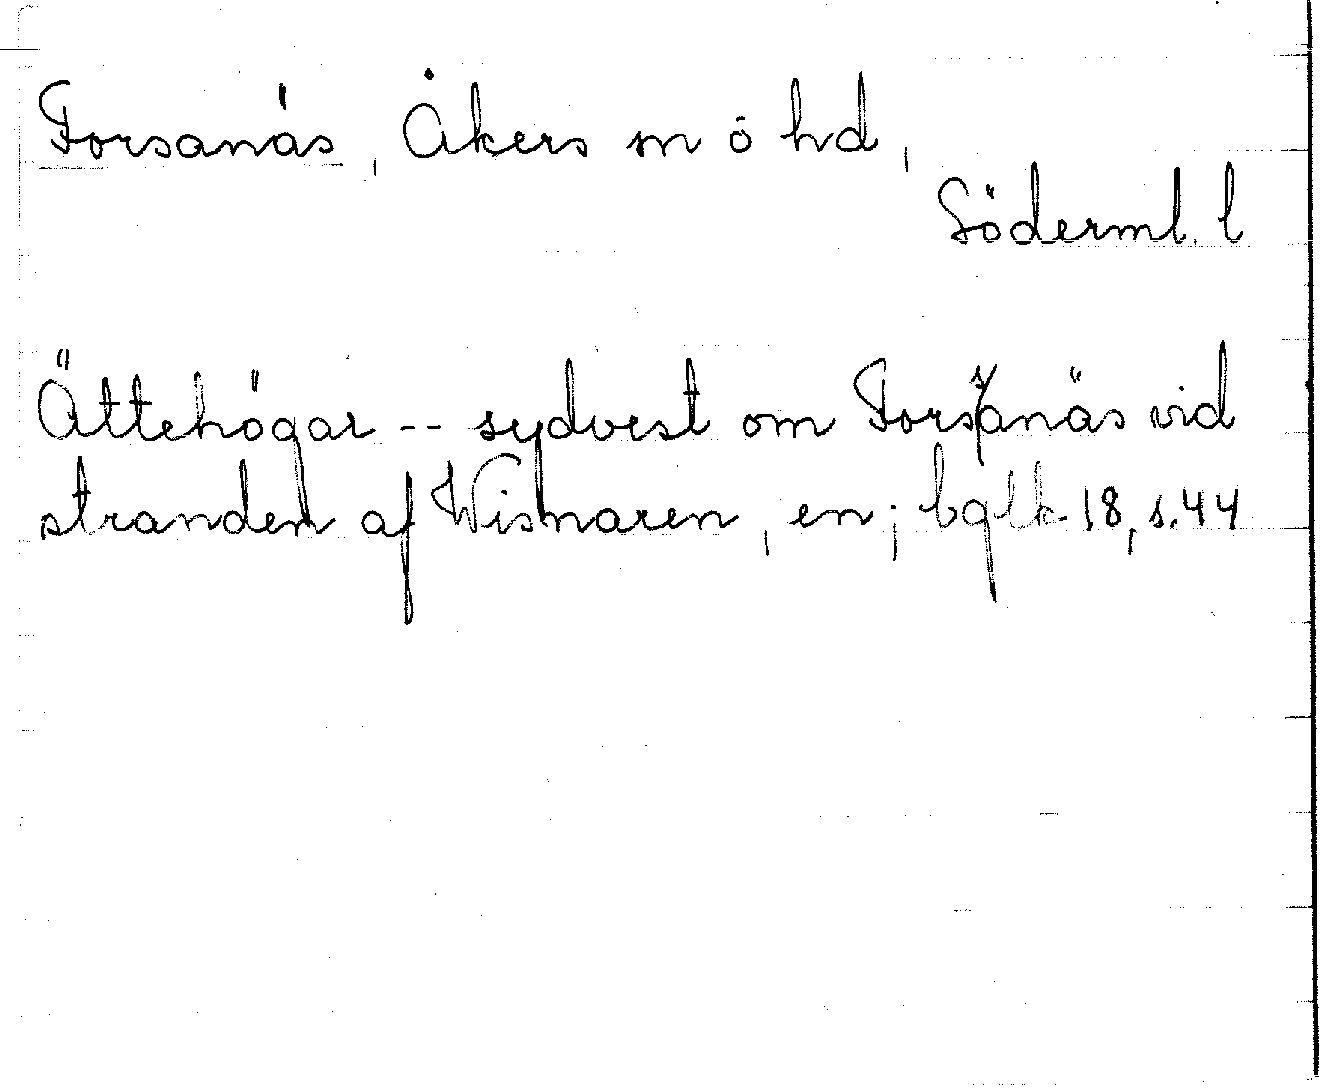 Forsanäs, Åkers sn o hd,
Söderml. l
Ättehögar -- sydvest om Forsanäs vid
stranden af Wisnaren, en; bglk 18, s. 44